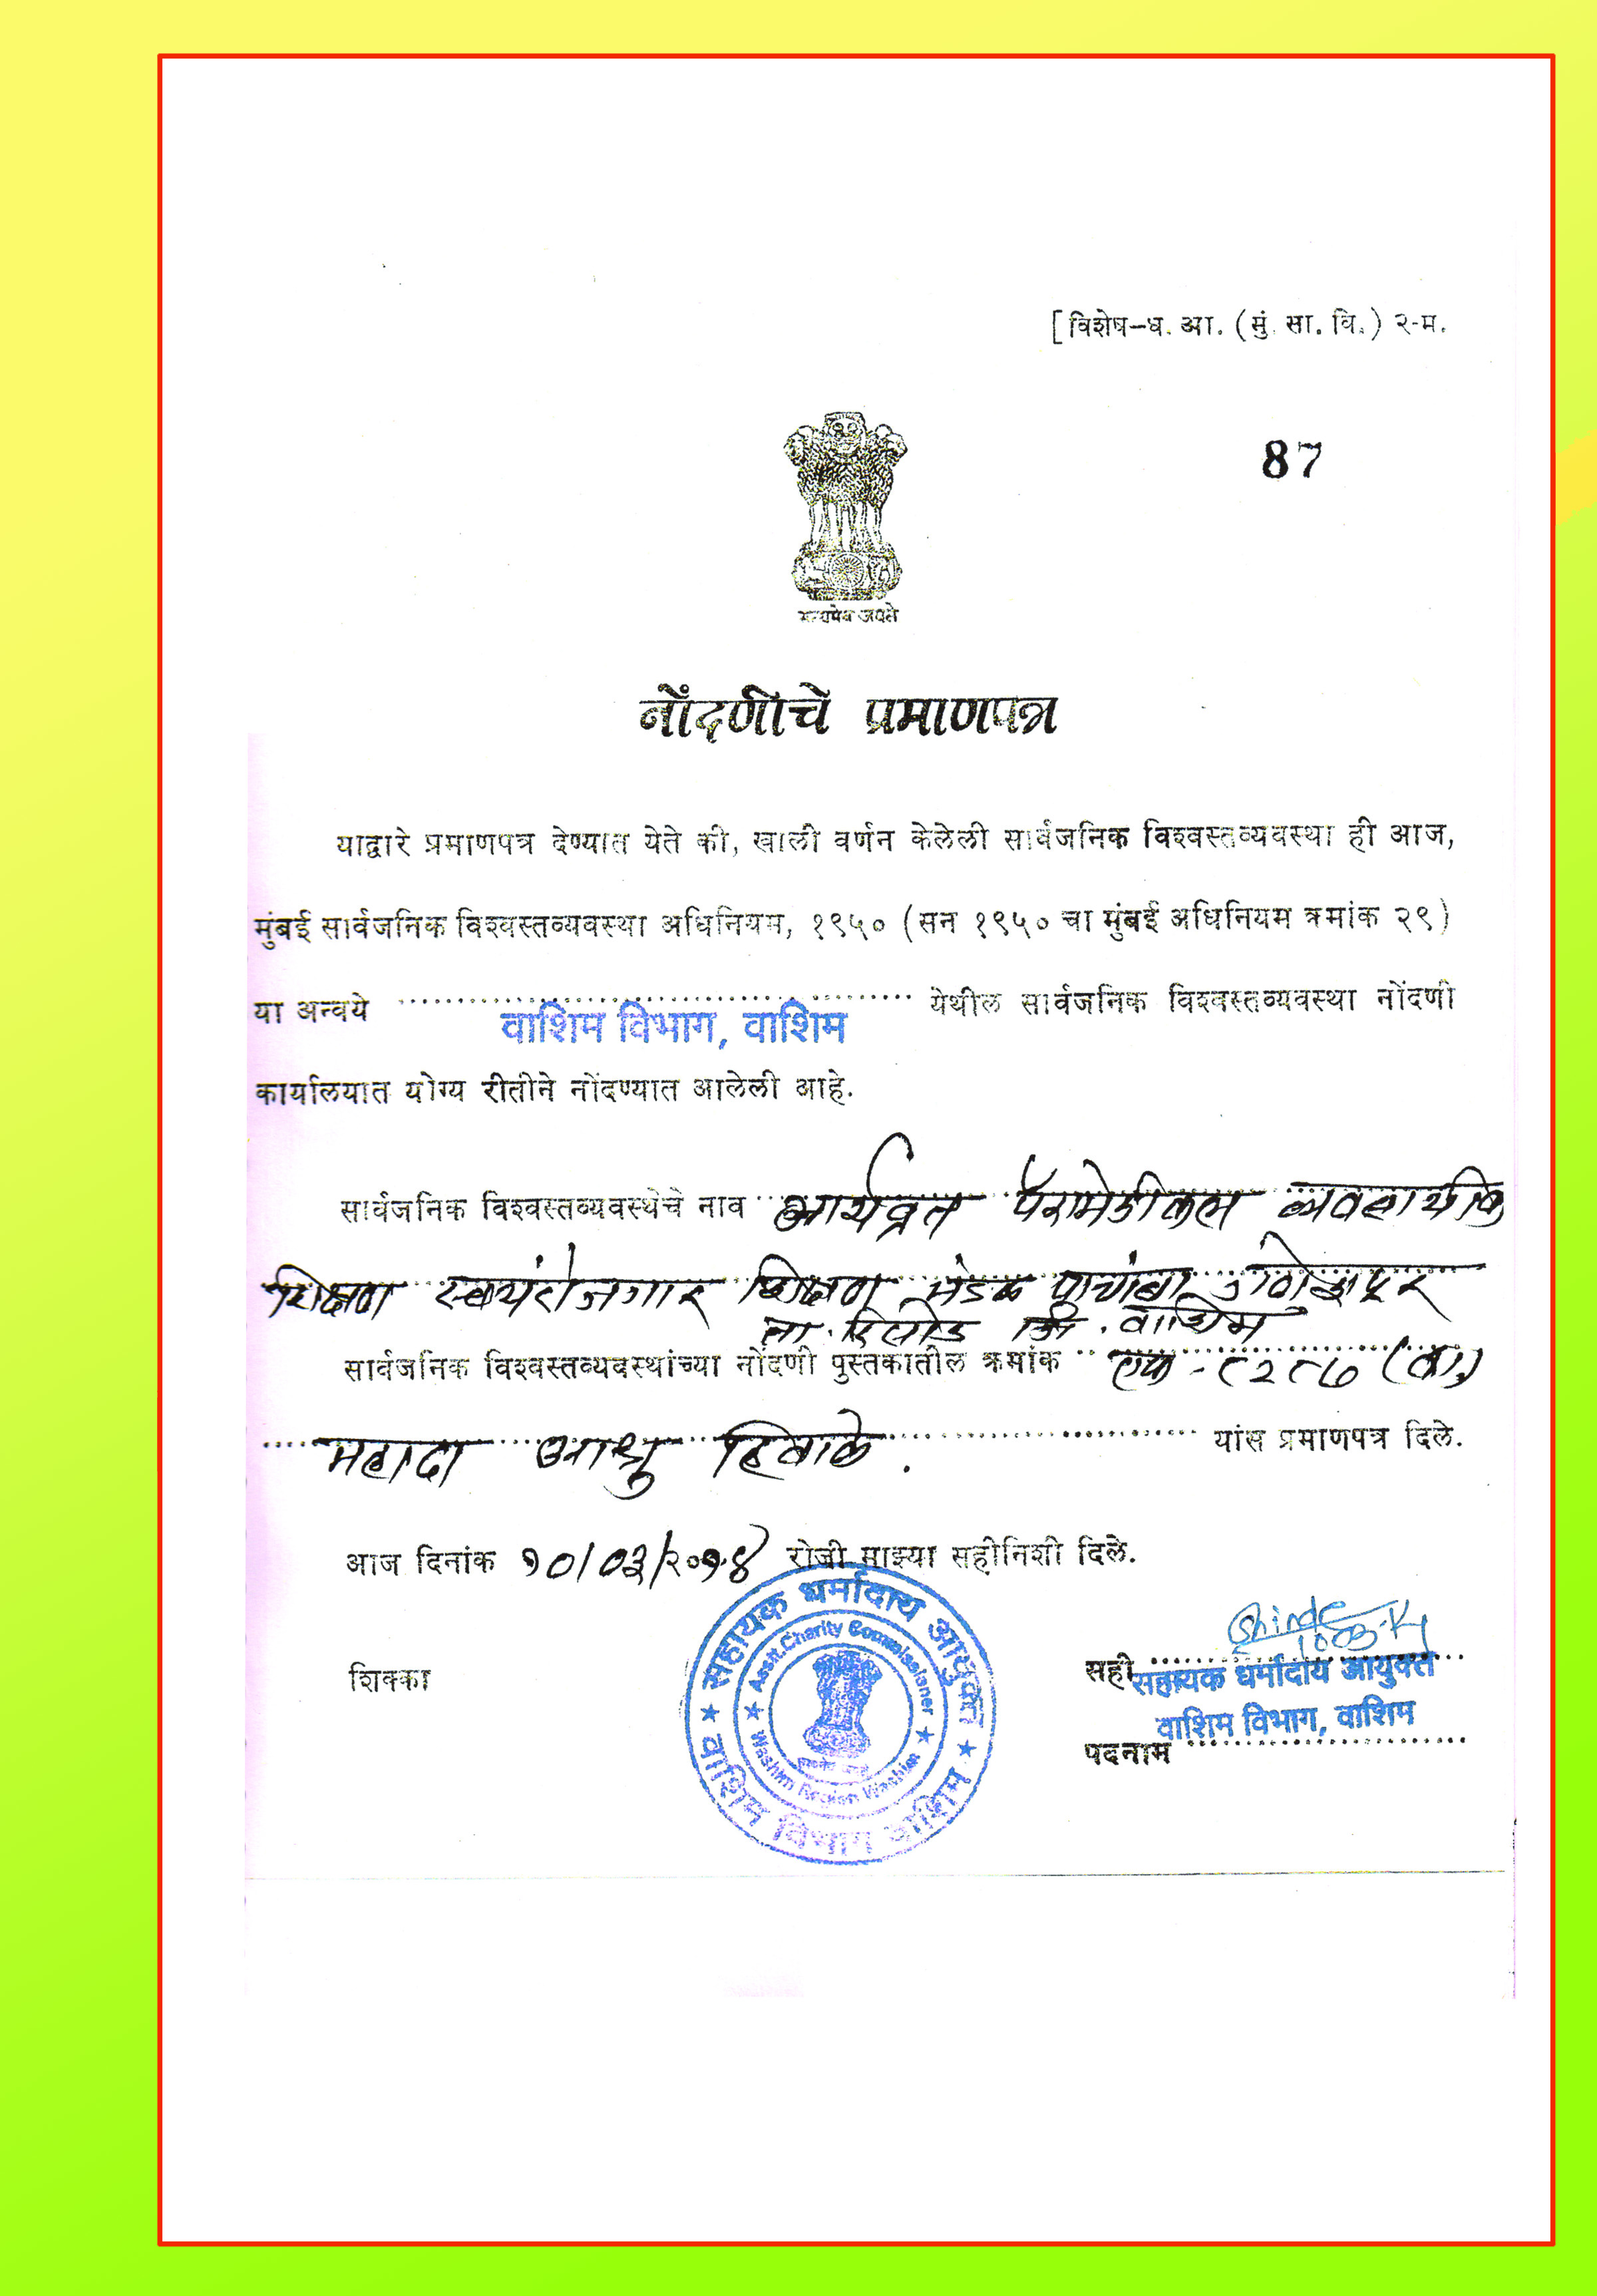 [विशेष-ध. आ. (मुं. सा. वि.) २-म.
87
सत्यमेव जयते
नोंदणीचे प्रमाणपत्र
याद्वारे प्रमाणपत्र देण्यात येते की, खाली वर्णन केलेली सार्वजनिक विश्वस्तव्यवस्था ही आज,
मुंबई सार्वजनिक विश्वस्तव्यवस्था अधिनियम, १९५० (सन १९५० चा मुंबई अधिनियम क्रमांक २९)
या अन्वये वाशिम विभाग, वाशिम येथील सार्वजनिक विश्वस्तव्यवस्था नोंदणी
कार्यालयात योग्य रीतीने नोंदण्यात आलेली आहे.
सार्वजनिक विश्वस्तव्यवस्थेचे नाव आर्यव्रत पॅरामेडीकल व्यवसायीक
शिक्षण स्वयंरोजगार शिक्षण मंडळ पाचांबा
ता. रिसोड जि. वाशिम
सार्वजनिक विश्वस्तव्यवस्थांच्या नोंदणी पुस्तकातील क्रमांक एफ-८२८७ (वा.)
महादा आश्रु हिवाळे. यांस प्रमाणपत्र दिले.
आज दिनांक १०/०३/२०१४ रोजी माझ्या सहीनिशी दिले.
शिक्का
सहायक धर्मादाय आयुक्त
वाशिम विभाग वाशिम
Asstt. Charity Commissioner
Washim Region Washim
सही
सहायक धर्मादाय आयुक्त
वाशिम विभाग, वाशिम
पदनाम